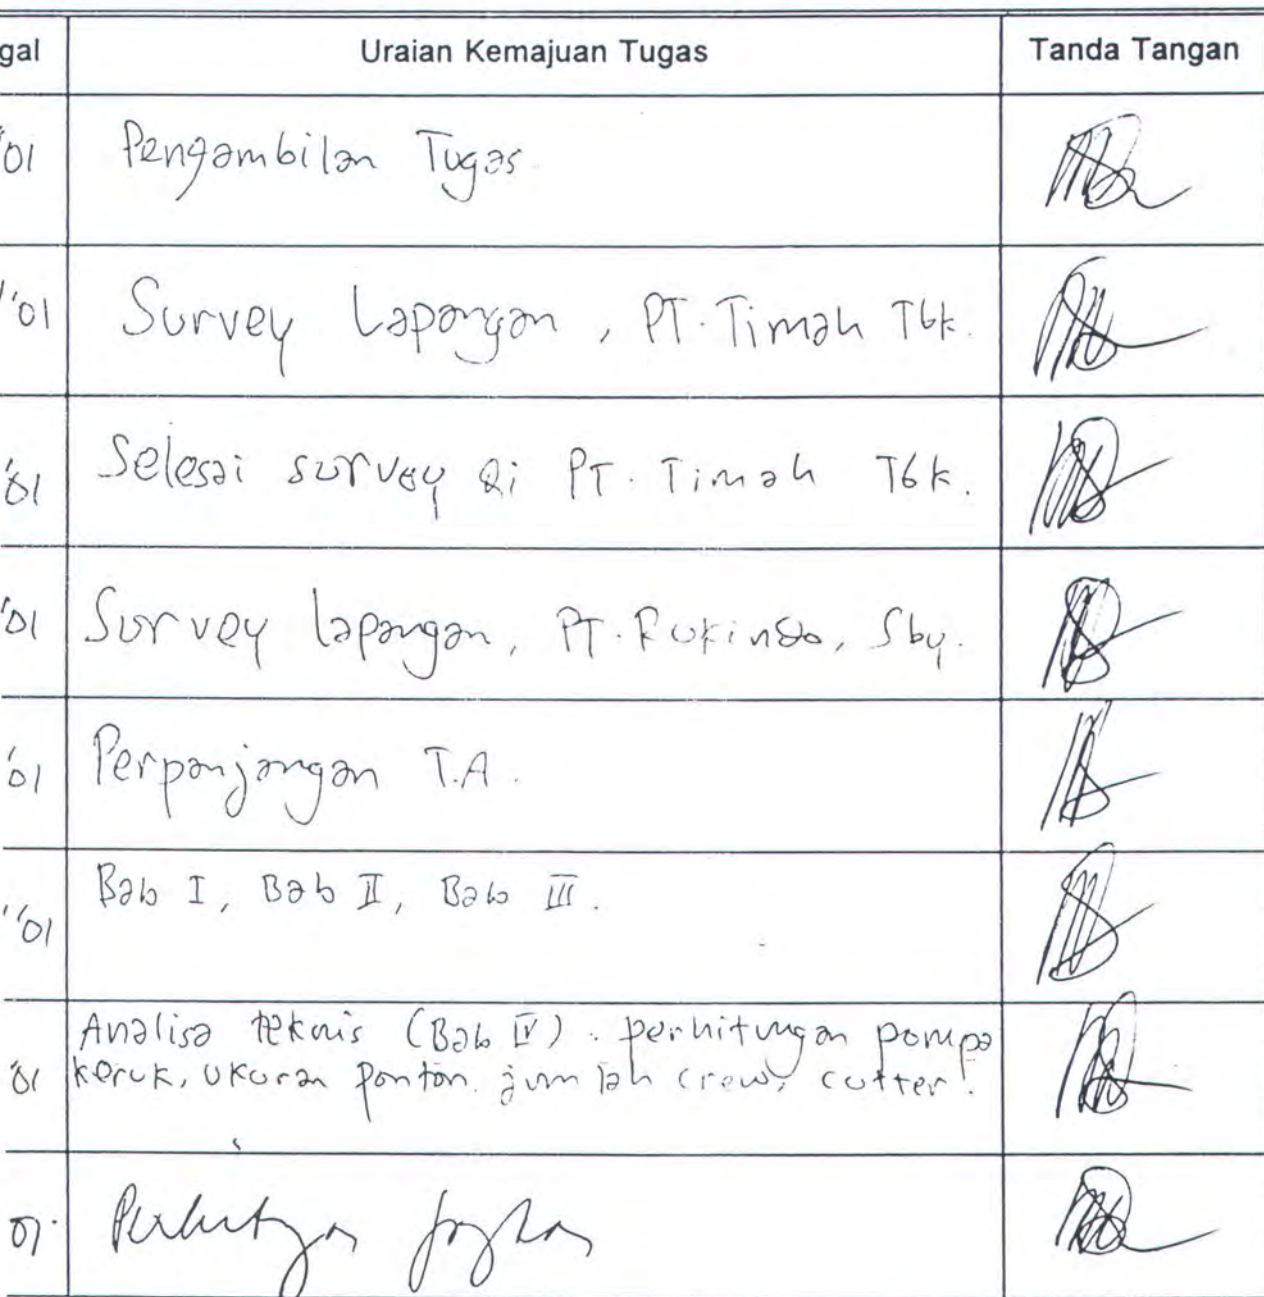 gal Uraian Kemajuan Tugas Tanda Tangan
'01 Pengambilan Tugas
'01 Survey Lapangan, PT. Timah Tbk.
'01 Selesai survey di PT. Timah Tbk.
'01 Survey lapangan, PT. Rukindo, Sby.
'01 Perpanjangan T.A.
'01 Bab I, Bab II, Bab III.
Analisa teknis (Bab IV). perhitungan pompa
'01 keruk, ukuran ponton. jumlah crew, cutter.
01 Perhitungan